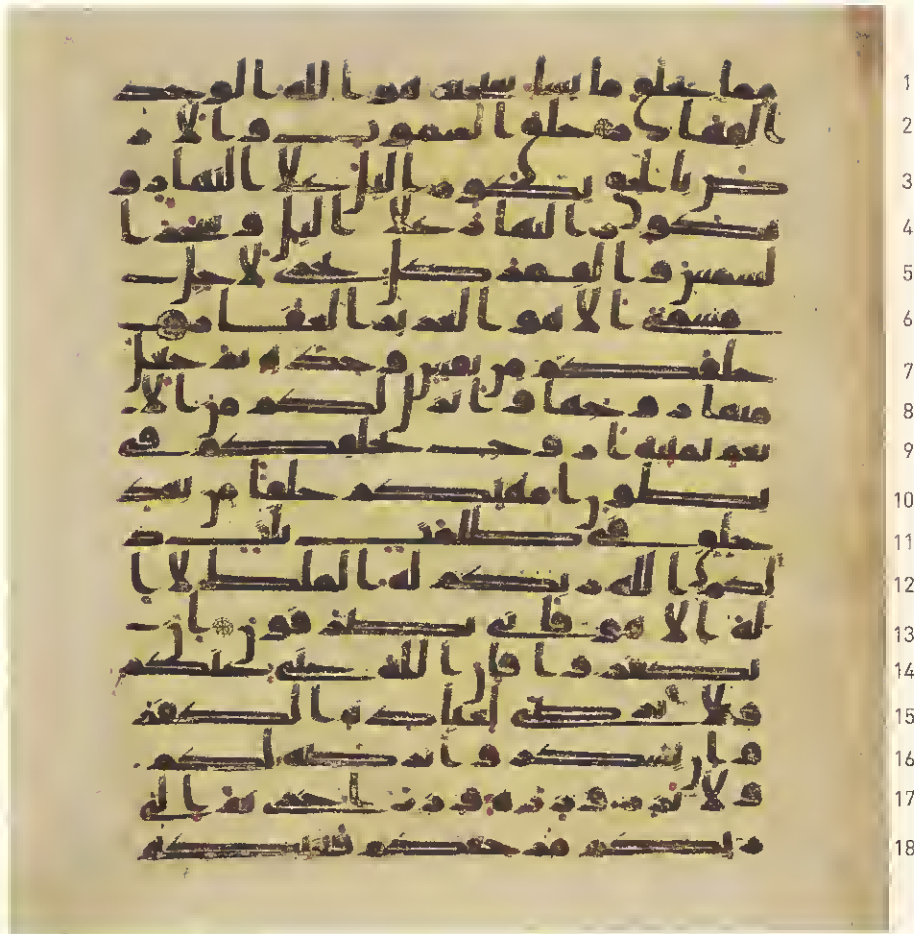 مما يخلق ما يشا سبحنه هو الله الوحد 1
القهار خلق السموت و الار 2
ض بالحق يكور اليل على النهار و 3
يكور النهار على اليل و سخر ا 4
لشمس و القمر كل يجري لاجل 5
مسمى الا هو العزيز الغفار 6
خلقكم من نفس وحدة ثم جعل 7
منها زوجها و انزل لكم من الا 8
نعم ثمنية ازوج يخلقكم في 9
بطون امهتكم خلقا من بعد 10
خلق في ظلمت ثلث ذ 11
لكم الله ربكم له الملك لا ا 12
له الا هو فانى تصرفون ان 13
تكفروا فان الله غني عنكم 14
و لا يرضى لعباده الكفر 15
و ان تشكروا يرضه لكم 16
و لا تزر وازرة وزر اخرى ثم الى 17
ربكم مرجعكم فينبئكم 18